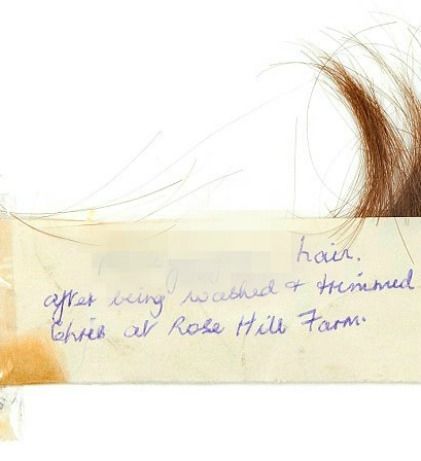 hair.
after being washed & trimmed
Chris at Rose Hill Farm.